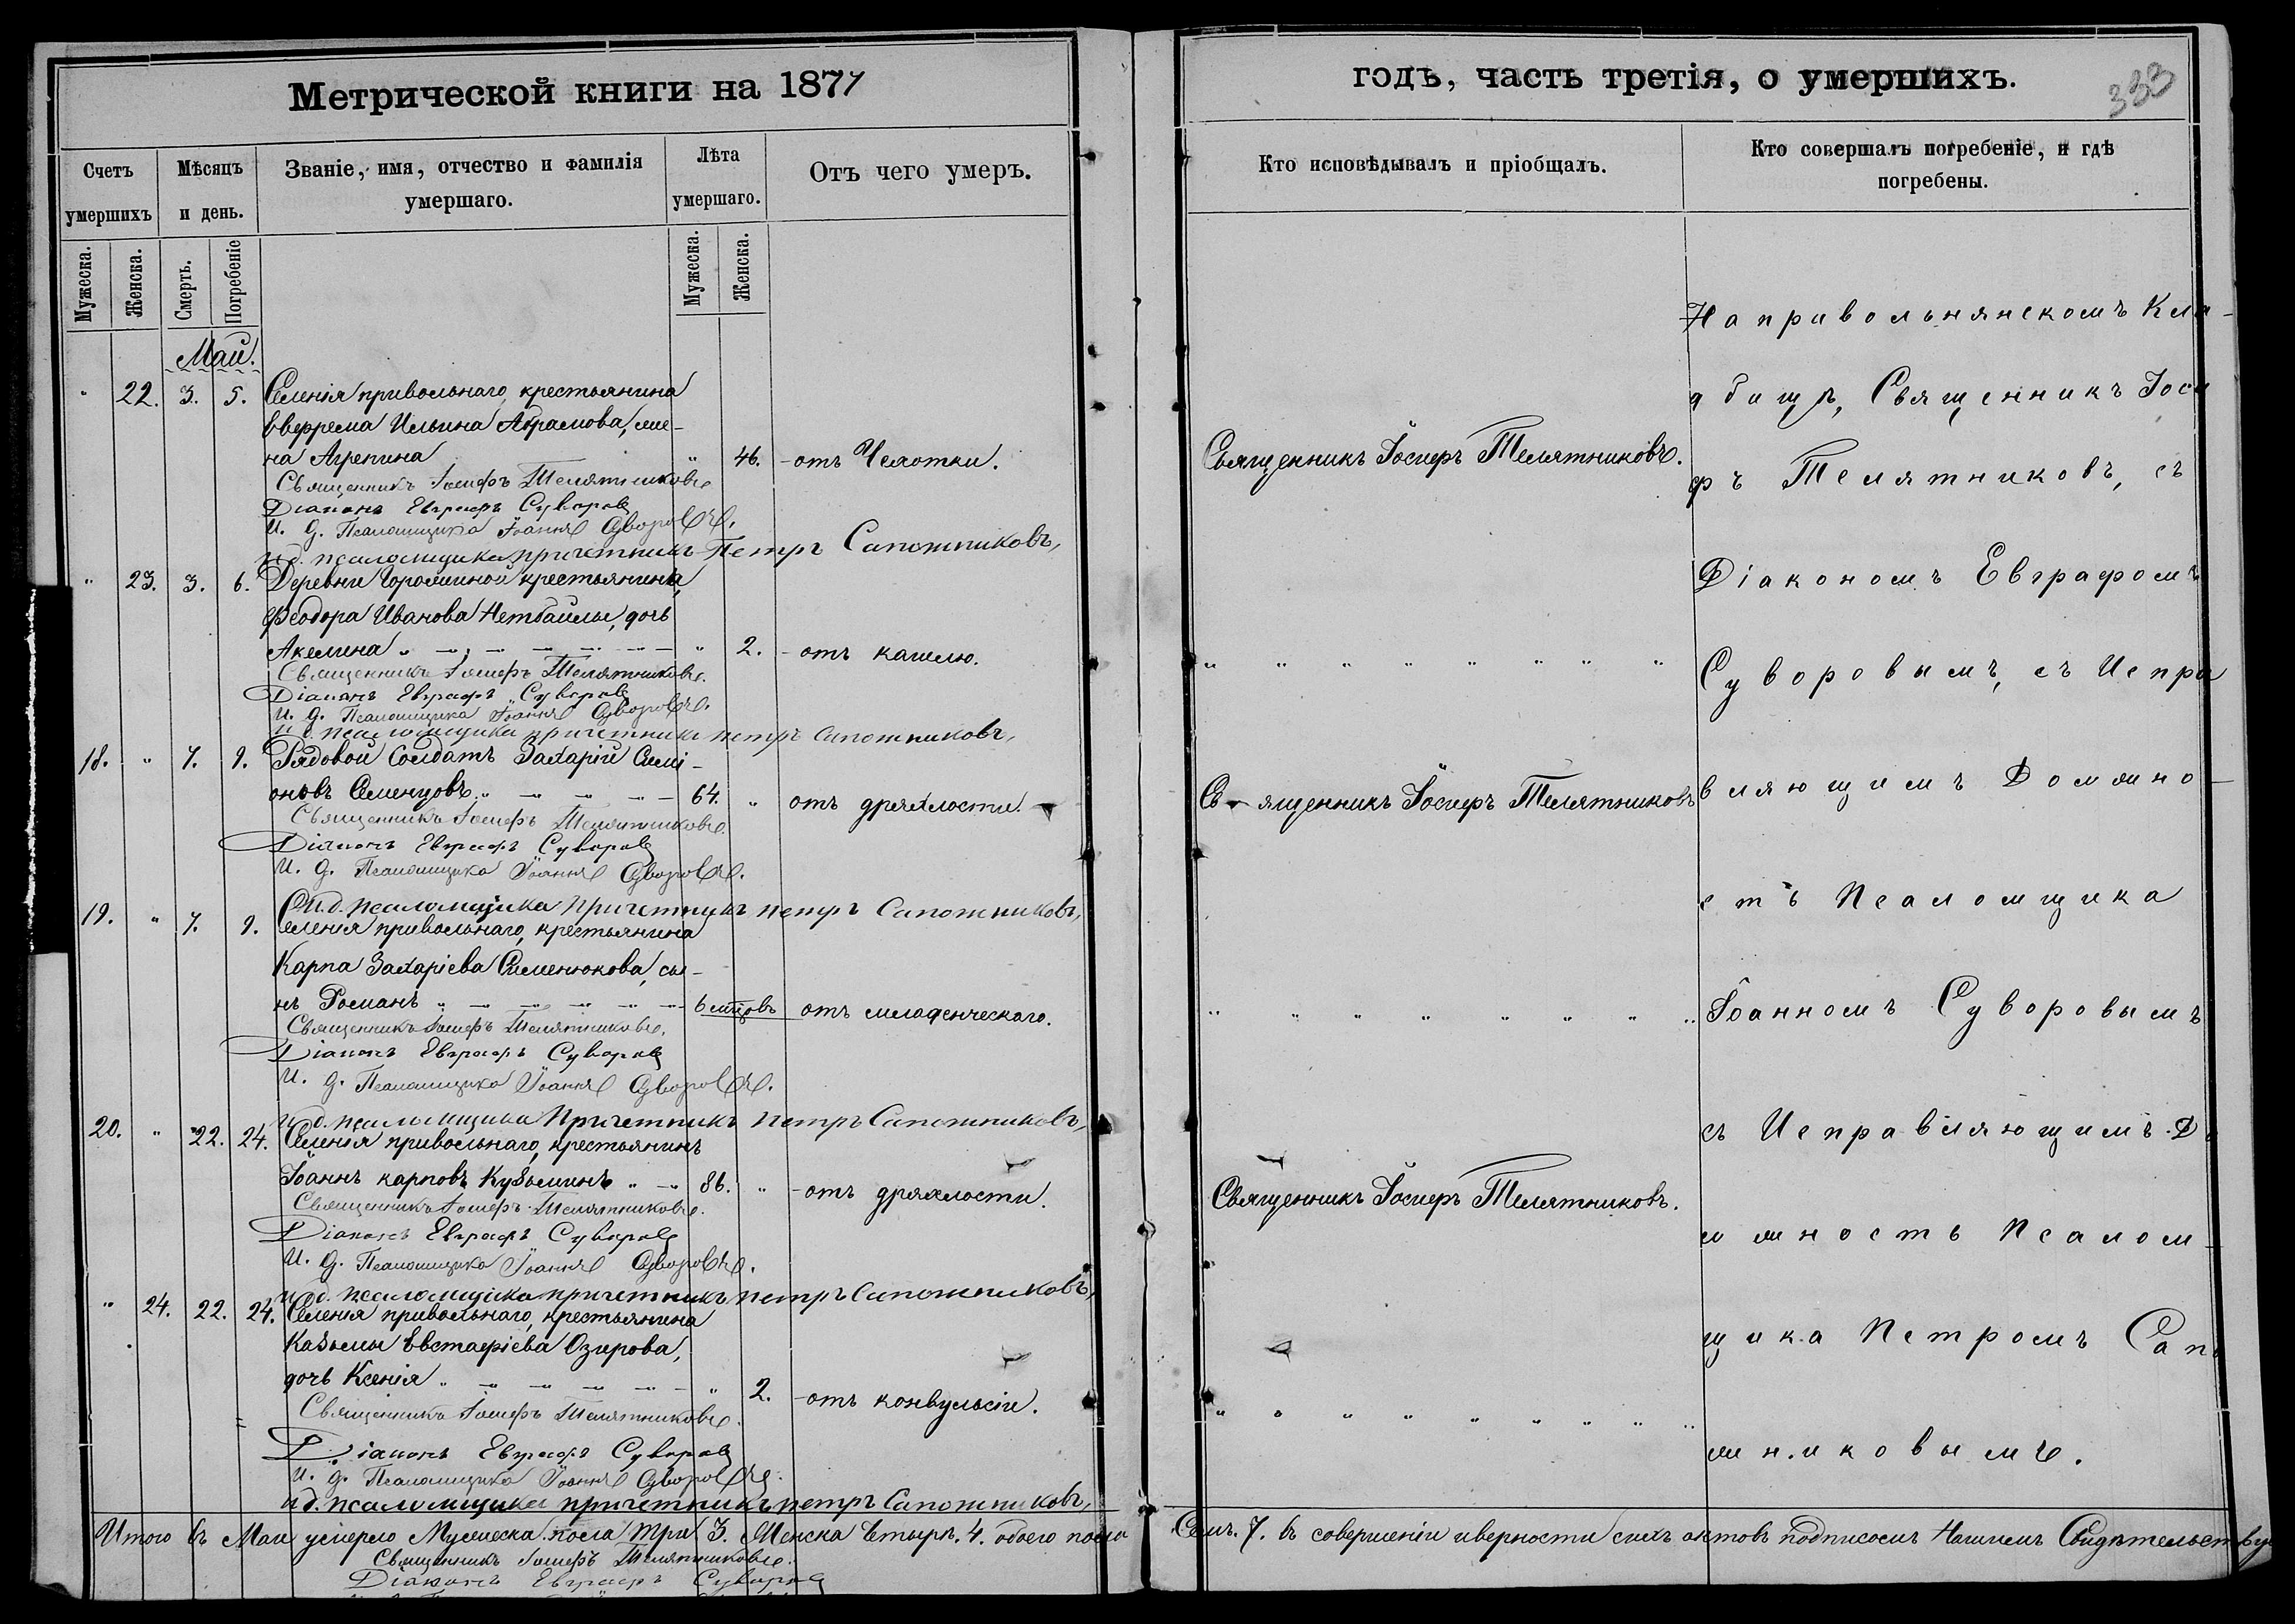 Метрической книги на 1871
Счетъ умершихъ
Мѣсяцъ и день.
Званіе, имя, отчество и фамилія умершаго.
Лѣта умершаго.
Отъ чего умеръ.
Мужеска.
Женска.
Смерть.
Погребеніе
Мужеска.
Женска.
Май.
" 22. 3. 5. Селенія привольнаго, крестьянина
Ефрема Ильина Абрамова, же-
на Агрепина " 46. -отъ Чехотки.
Священникъ Іосифъ Телятниковъ.
Діаконъ Евграфъ Суворов
И. д. Псаломщика Іоаннъ Суворовъ.
и.д. псаломщика причетникъ Петръ Сапожниковъ,
" 23. 3. 6. Деревни крестьянина,
Феодора Иванова Нетбайлы, дочь
Акелина " 2. -отъ кашлю.
Священникъ Іосифъ Телятниковъ.
Діаконъ Евграфъ Суворов
И. д. Псаломщика Іоаннъ Суворовъ.
и.д. псаломщика причетникъ петръ Сапожниковъ,
18. " 7. 9. Рядовой Солдатъ Захарій Симі-
оновъ Семенцовъ. 64. " отъ дряхлости.
Священникъ Іосифъ Телятниковъ.
Діаконъ Евграфъ Суворов
И. д. Псаломщика Іоаннъ Суворовъ.
И.д. псаломщика Причетникъ петръ Сапожниковъ,
19. " 7. 9. Селенія привольнаго, крестьянина
Карпа Захаріева Сименюкова, сы-
нъ Романъ " 6 мѣцовъ отъ младенческаго.
Священникъ Іосифъ Телятниковъ.
Діаконъ Евграфъ Суворов
И. д. Псаломщика Іоаннъ Суворовъ.
и.д. псаломщика Причетникъ петръ Сапожниковъ,
20. " 22. 24. Селенія привольнаго, крестьянинъ
Іоаннъ карповъ Кузьминъ " 86. " -отъ дряхлости.
Священникъ Іосифъ Телятниковъ.
Діаконъ Евграфъ Суворов
И. д. Псаломщика Іоаннъ Суворовъ.
и.д. псаломщика причетникъ петръ Сапожниковъ,
" 24. 22. 24. Селенія привольнаго, крестьянина
Казьмы Евстафіева Озирова,
дочь Ксенія " 2. -отъ конвульсіи.
Священникъ Іосифъ Телятниковъ.
Діаконъ Евграфъ Суворов
И. д. Псаломщика Іоаннъ Суворовъ.
и.д. псаломщика причетникъ петръ Сапожниковъ,
Итого въ Маи умерло Мужеска пола три 3. Женска четыри. 4. обоего пола
Священникъ Іосифъ Телятниковъ.
Діаконъ Евграфъ Суворов
годъ, часть третія, о умершихъ.
333
Кто исповѣдывалъ и пріобщалъ.
Кто совершалъ погребеніе, и гдѣ погребены.
Священникъ Іосифъ Телятниковъ.
Священникъ Іосифъ Телятниковъ
Священникъ Іосифъ Телятниковъ.
На привольнянскомъ Кла-
дбищѣ, Священникъ Іоси
фъ Телятниковъ, съ
Діакономъ Евграфомъ
Суворовымъ, съ Испра
вляющимъ Должно-
сть Псаломщика
Іоанномъ Суворовымъ
съ Исправляющимъ До
лжность Псалом-
щика Петромъ Сапо
жниковымъ.
Семъ. 7. въ совершеніи и верности сихъ актовъ подписомъ Нашимъ Свидѣтельству